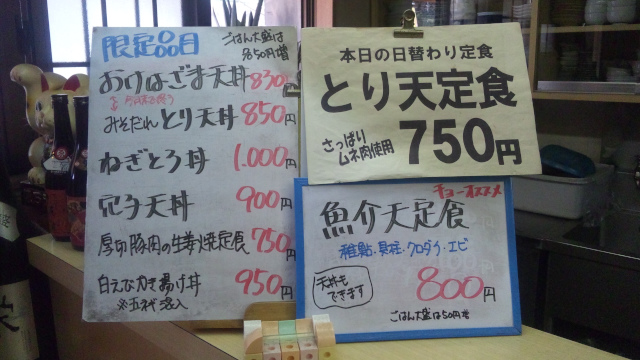 限定品目
ごはん大盛は
各50円増
おけはざま天丼 830円
みそだれとり天丼 850円
ねぎとろ丼 1.000円
穴子天丼 900円
厚切豚肉の生姜焼定食 750円
白えびかき揚げ丼 950円
本日の日替わり定食
とり天定食
さっぱり
ムネ肉使用
750円
チョーオススメ
魚介天定食
稚鮎・貝柱・クロダイ・エビ
天丼も
できます
800円
ごはん大盛は50円増